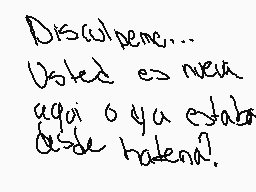 Disculpeme...
Usted es nueva
aqui o ya estaba
desde hatena?